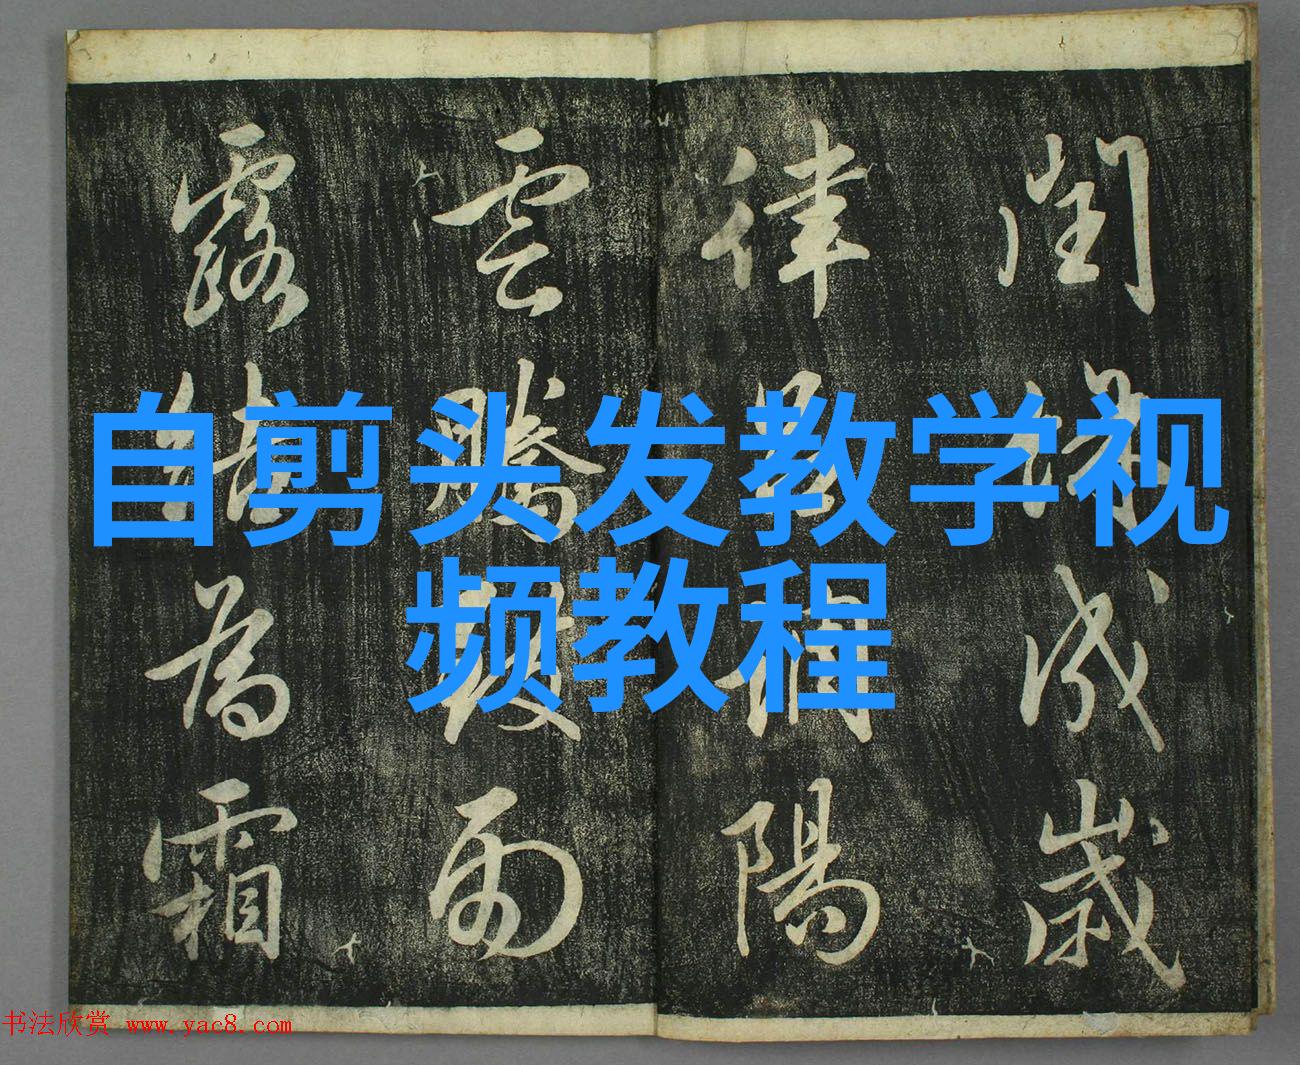 自剪头发教学视
频教程
閏餘成歲
律調陽
雲騰致雨
露結為霜
书法欣赏 www.yac8.com